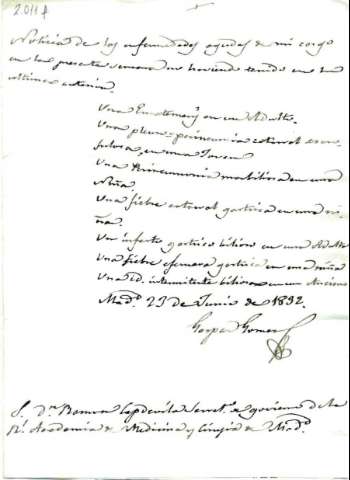 2.011
Noticia de las enfermedades agudas de mi cargo
en la presente semana no haviendo tenido en la
ultima
Una en un Adulto.
Una pleuro-perineumonia catarral
en una Joven
Una Perineumonia en una
Niña.
Una fiebre catarral gastrica en una ni-
ña.
Un infarto gastrico bilioso en un Adulto
Una fiebre efemera gastrica en una niña
Una id. intermitente biliosa en un Anciano
Mad.d 23 de Junio de 1832.
Gaspar Gomez
S. D.n Ramon Capdevila Secret.o de govierno de la
R.l Academia de Medicina y Cirugia de Mad.d